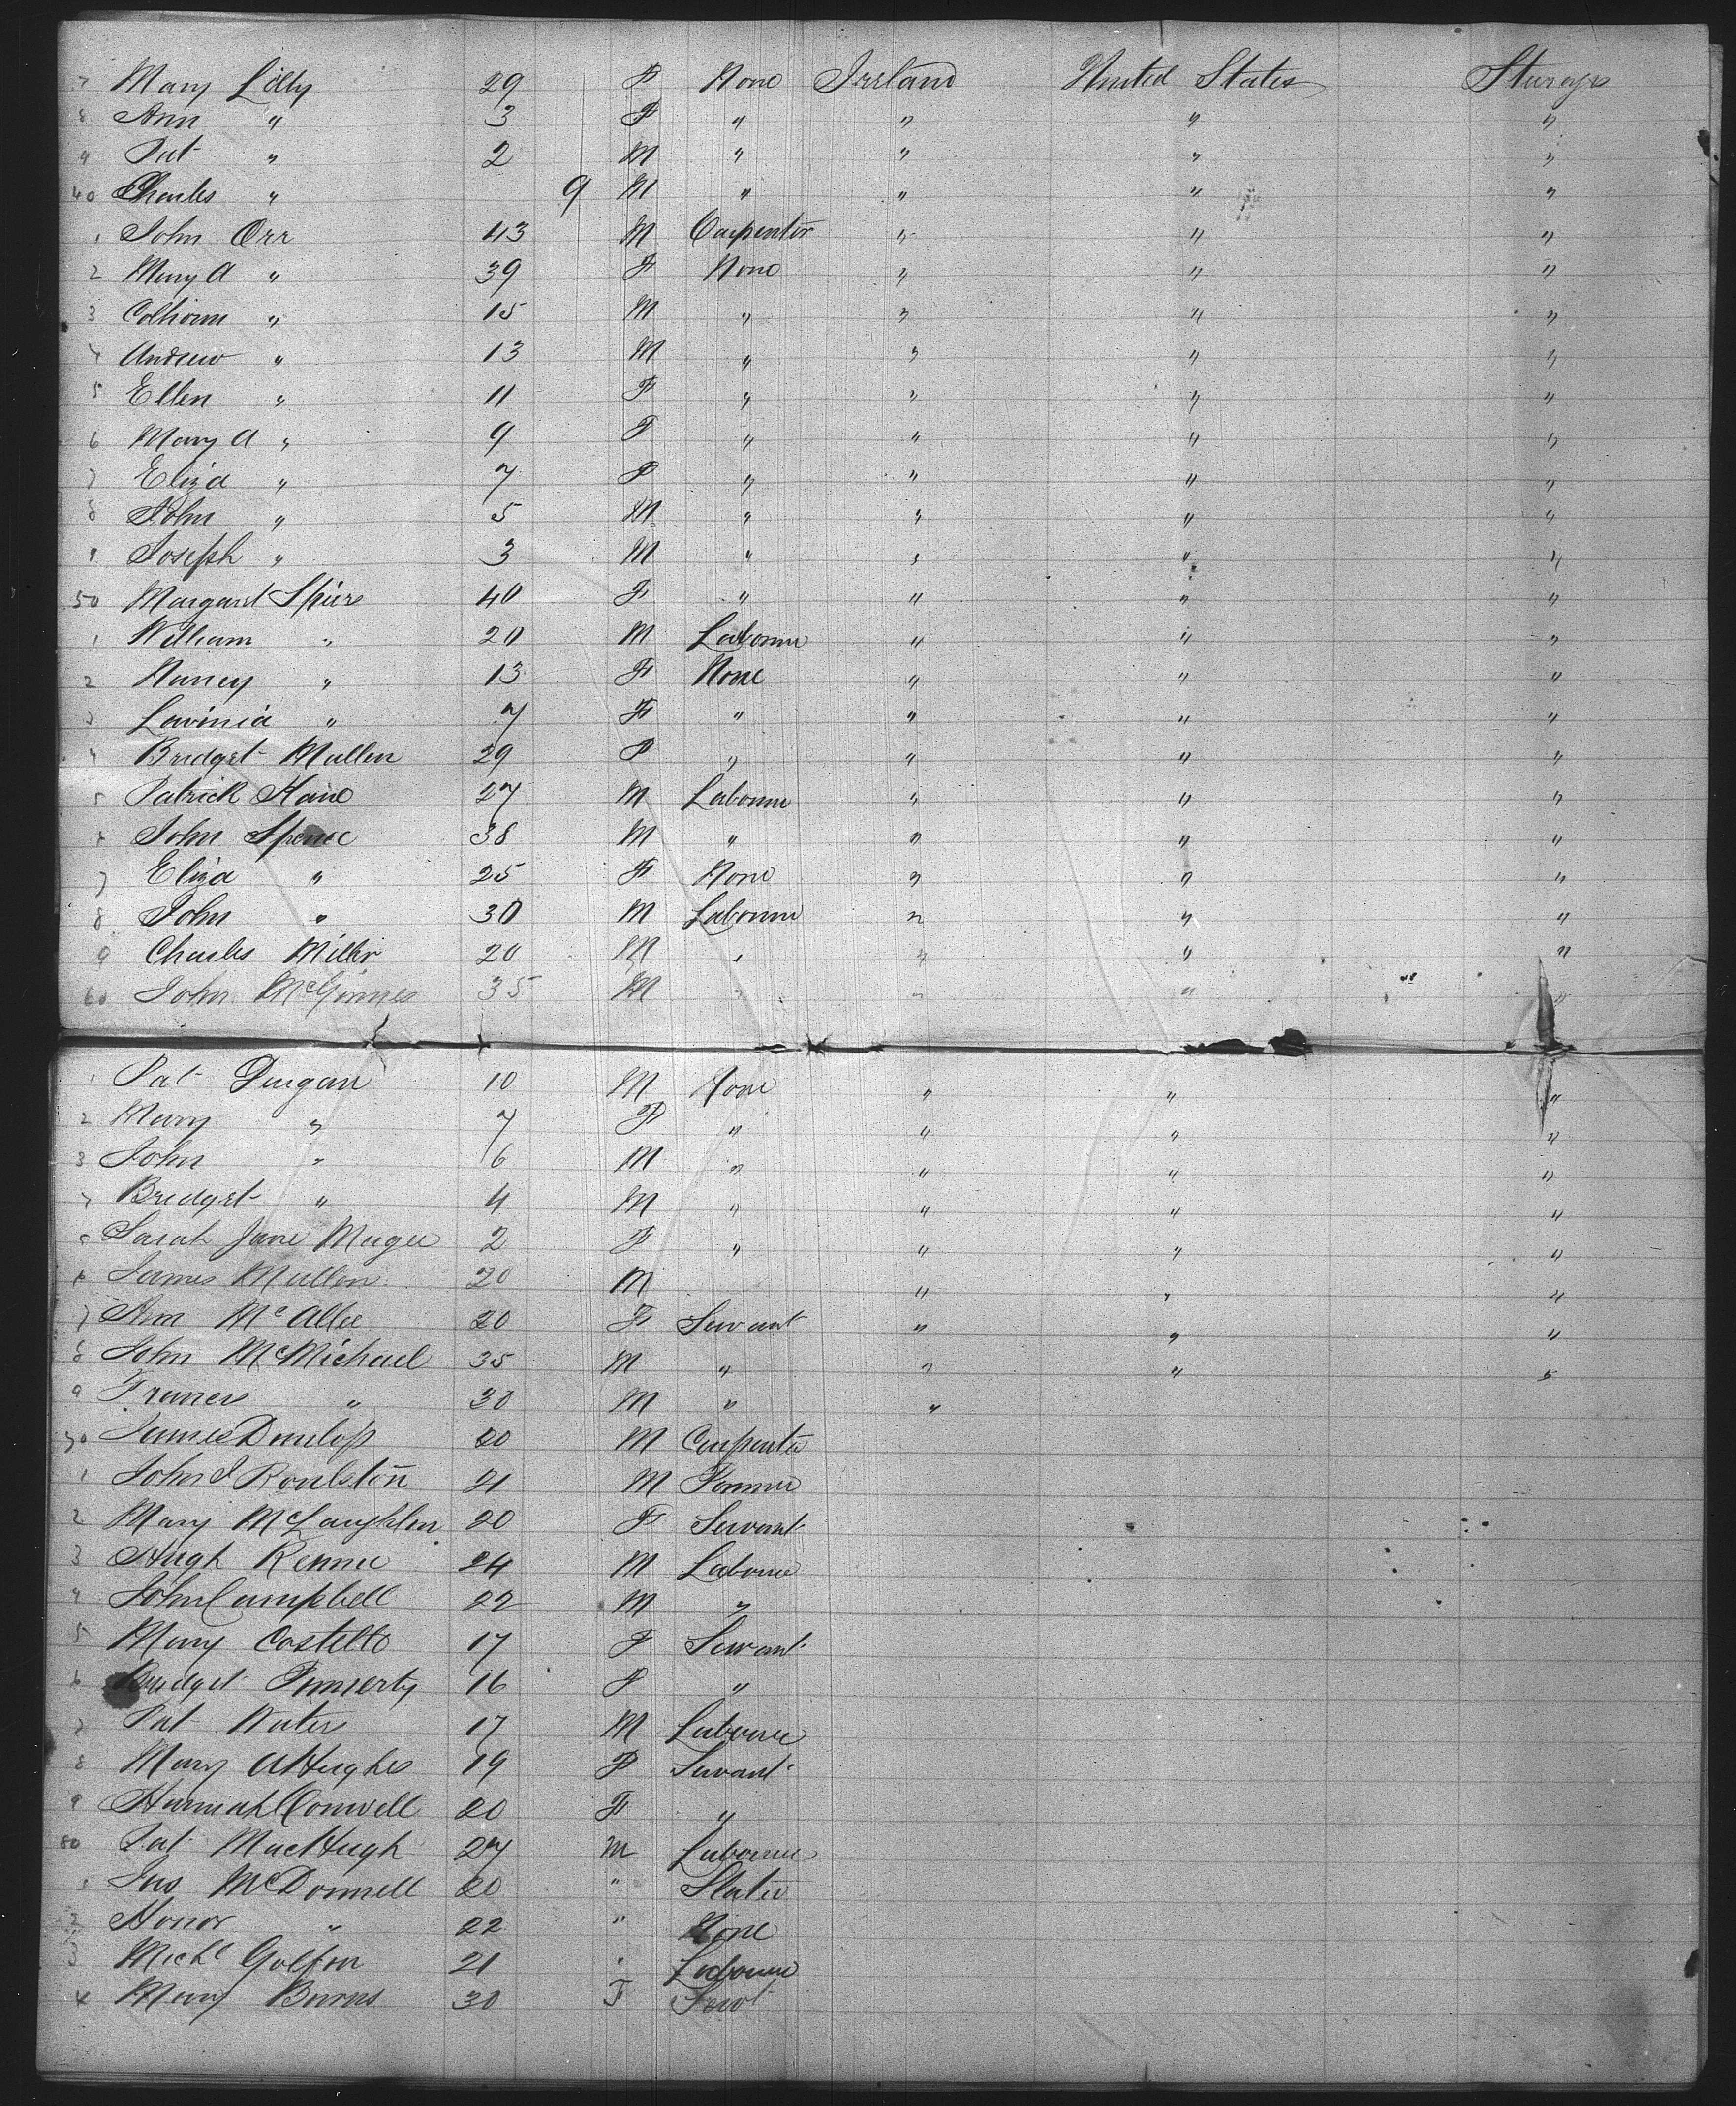 7 Mary Lilly 29 F None Ireland United States Sterage
8 Ann " 3 F " " " "
9 Pat " 2 M " " " "
40 Charles " 9 M " " " "
1 John Orr 43 M Carpenter " " "
2 Mary A " 39 F None " " "
3 Colhoun " 15 M " " " "
4 Andrew " 13 M " " " "
5 Ellen " 11 F " " " "
6 Mary A " 9 F " " " "
7 Eliza " 7 F " " " "
8 John " 5 M " " " "
9 Joseph " 3 M " " " "
50 Margaret 40 F " " " "
1 William " 20 M Labourer " " "
2 Nancy " 13 F None " " "
3 Lavinia " 7 F " " " "
4 Bridget Mullen 29 F " " " "
5 Patrick Kane 27 M Labourer " " "
6 John Spence 38 M " " " "
7 Eliza " 25 F None " " "
8 John " 30 M Labourer " " "
9 Charles Miller 20 M " " " "
60 John McGinnes 35 M " " " "
1 Pat Durgan 10 M None " " "
2 Mary " 7 F " " " "
3 John " 6 M " " " "
4 Bridget " 4 M " " " "
5 Sarah Jane Magee 2 F " " " "
6 James Mullen 20 M " " "
7 Ann McAllee 20 F Servant " " "
8 John McMichael 35 M " " " "
9 Frances " 30 M " "
70 James Dunlop 20 M Carpenter
1 John J Roulston 21 M Farmer
2 Mary McLaughlin 20 F Servant
3 Hugh Rennie 24 M Labourer
4 John Campbell 22 M "
5 Mary Costello 17 F Servant
6 Bridget 16 F "
7 Pat 17 M Labourer
8 Mary A Hughes 19 F Servant
9 Hannah Conwell 20 F "
80 Pat MacHugh 27 M Labourer
1 Jas McDonnell 20 " Slater
2 Honor " 22 " None
3 Michl 21 " Labourer
4 Mary Burns 30 F Servt